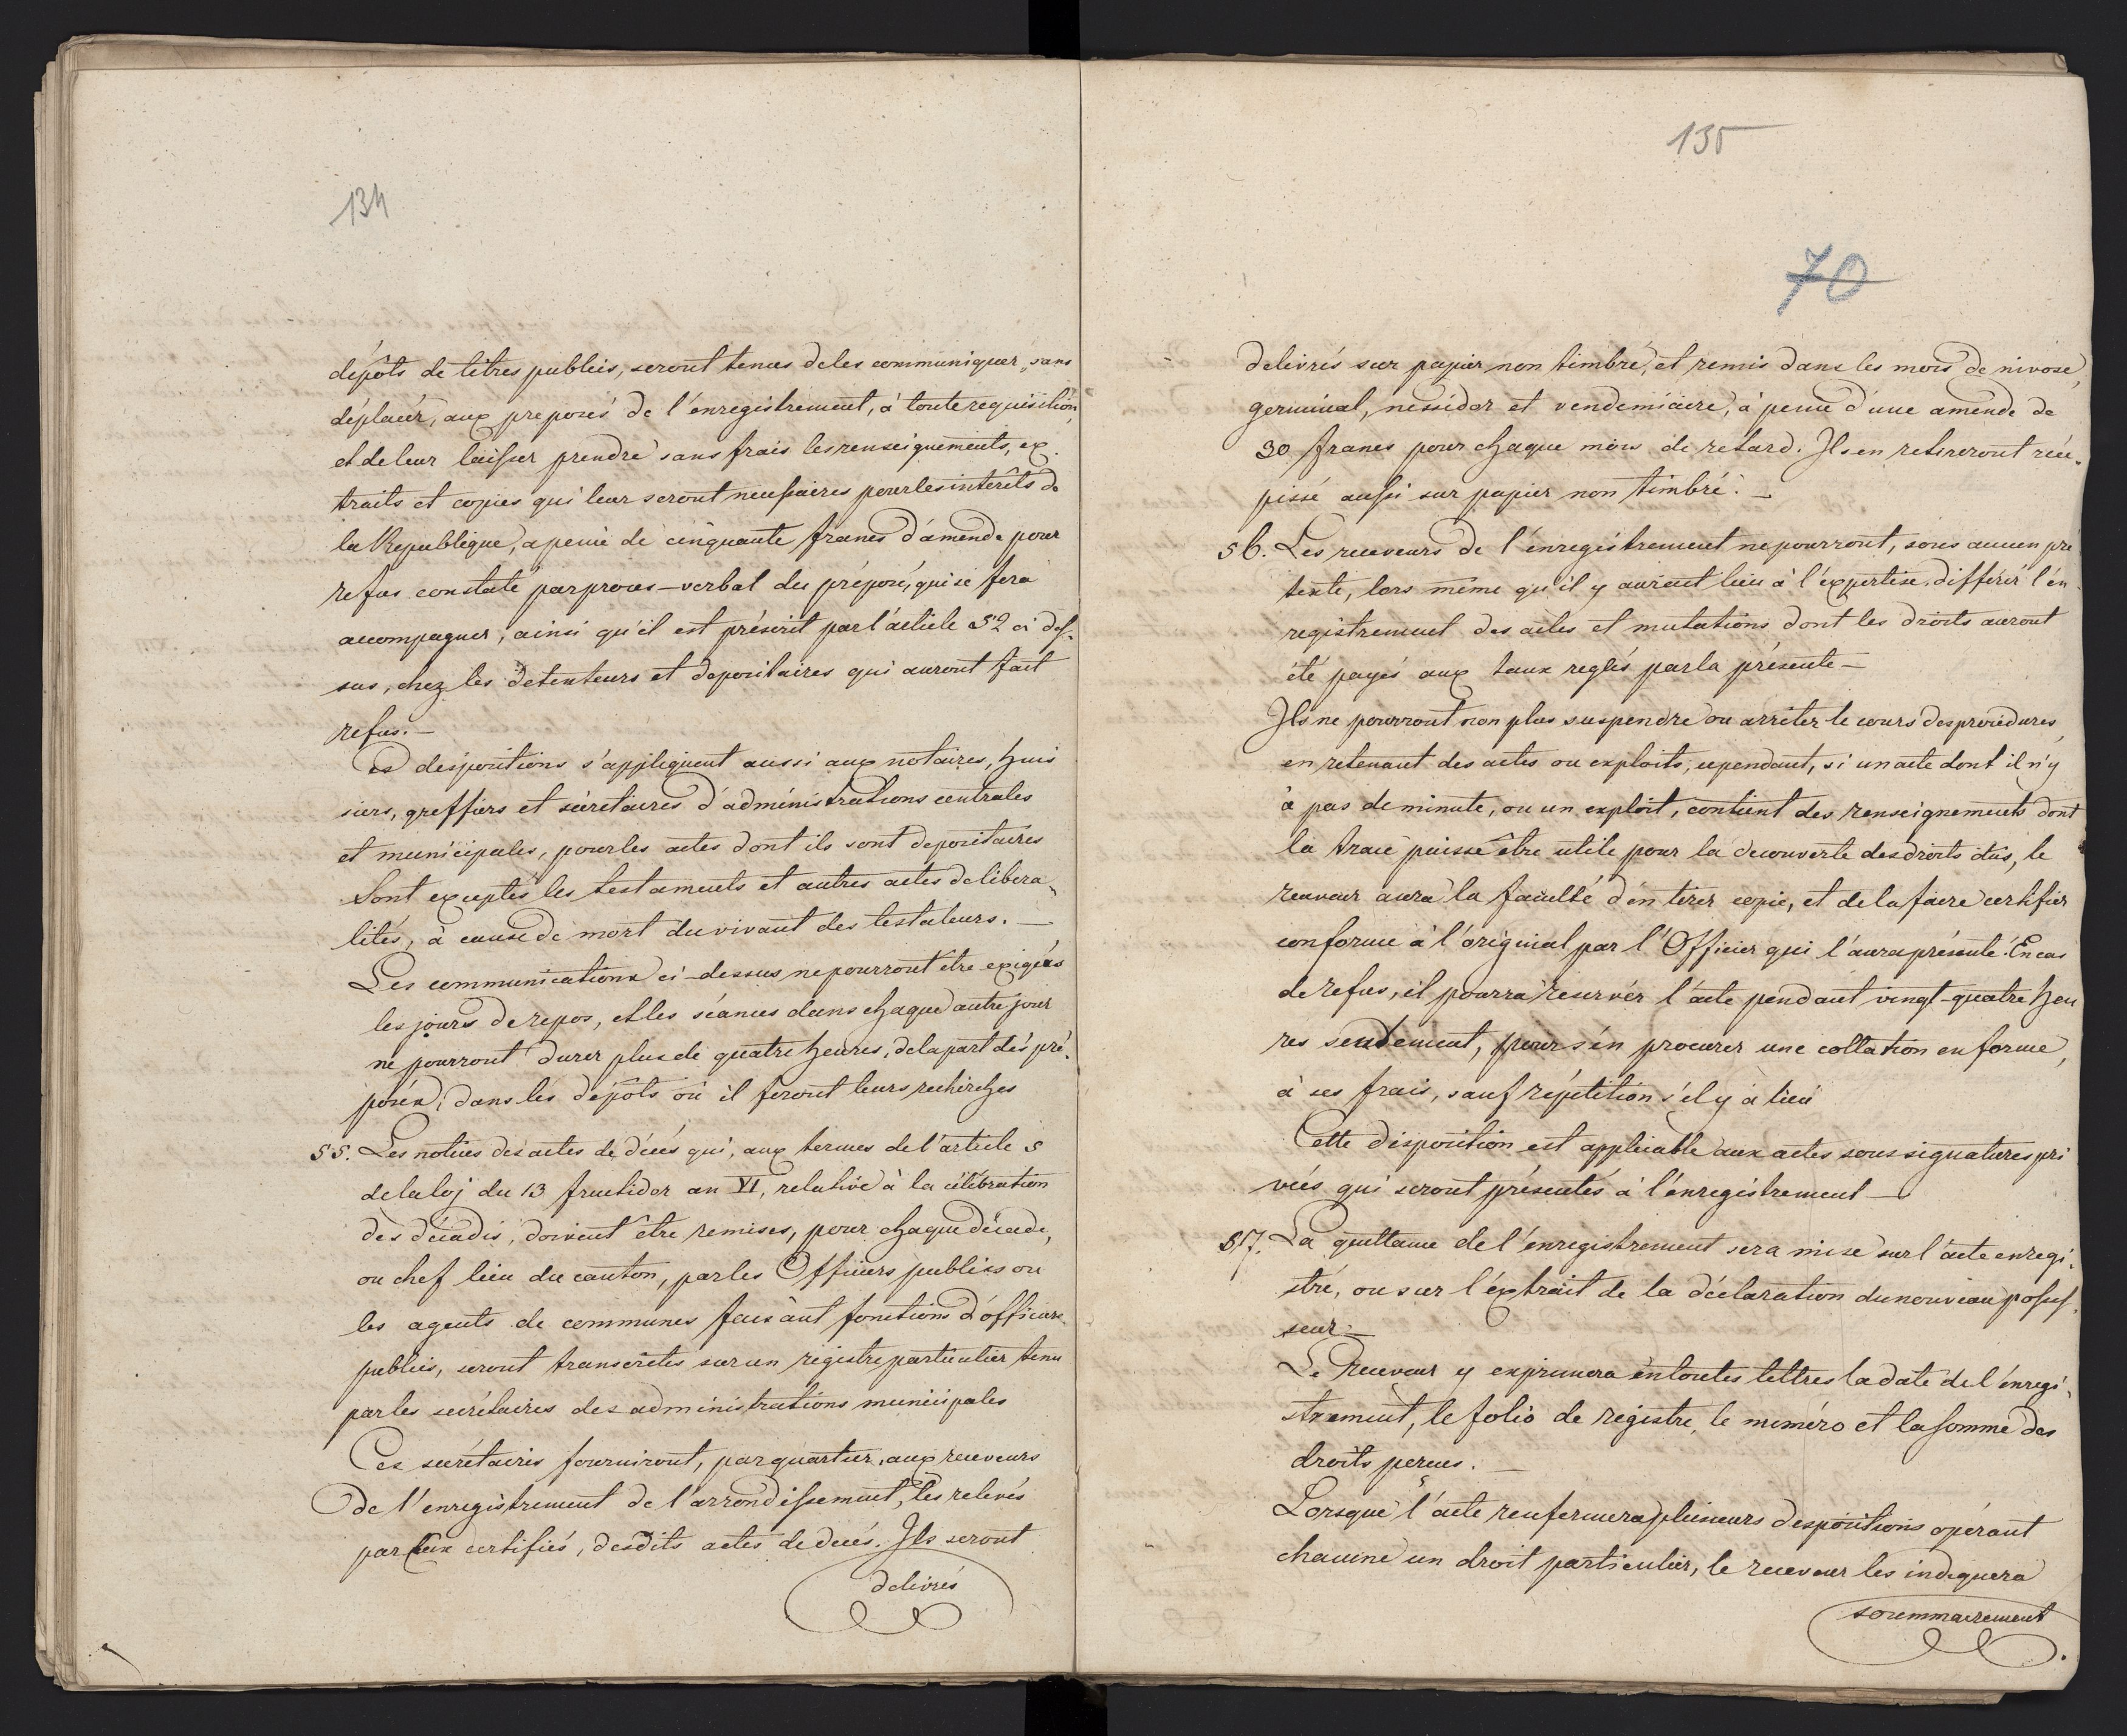 134
dépôts de titres publics, seront tenus de les communiquer, sans
déplacer, aux preposés de l'enregistrement, à toute requisition,
et de leur laisser prendre sans frais les renseignements, ex-
traits et copies qui leur seront necessaires pour les intérêts de
la Republique, a peine de cinquante francs d'amende pour
refus constaté par procès-verbal du préposé, qui se fera
accompagner, ainsi qu'il est préscrit par l'article 52 ci des-
sus, chez les detenteurs et depositaires qui auront fait
refus.—
Ces dispositions s'appliquent aussi aux notaires, huis
siers, greffiers et sécretaires d'administrations centrales
et municipales, pour les actes dont ils sont depositaires
Sont exceptés les testaments et autres actes de libera-
lités, à cause de mort du vivant des testateurs.—
Les communications ci-dessus ne pourront être exigées
les jours de repos, et les séances dans chaque autre jour
ne pourront durer plus de quatre heures, de la part des pré-
posés, dans les dépôts où il feront leurs recherches
55. Les notices des actes de décés qui, aux termes de l'article 5
de la loj du 13 fructidor an VI, relative à la célébration
des décadis, doivent être remises, pour chaque décade,
ou chef lieu du canton, par les Officiers publics ou
les agents de communes faisant fonctions d'officiers
publics, seront transcrites sur un régistre particulier tenu
par les secrétaires des administrations municipales
Ces secrétaires fourniront, par quartier, aux receveurs
De l'enregistrement de l'arrondissement, les relevés
par eux certifiés, desdits actes de decés. Ils seront
delivrés
135
70
delivrés sur papier non timbré, et remis dans les mois de nivose,
germinal, messidor et vendemiaire, à peine d'une amende de
30 francs pour chaque mois de retard. Ils en retireront récé-
pissé aussi sur papier non timbré.—
56. Les receveurs de l'enregistrement ne pourront, sous aucun pré
texte, lors même qu'il y auroit lieu à l'expertise, différer l'en-
registrement des actes et mutations dont les droits auront
été payés aux taux reglés par la présente—
Ils ne pourront non plus suspendre ou arrêter le cours des procédures,
en retenant des actes ou exploits; cependant, si un acte dont il n'y
a pas de minute, ou un exploit, contient des renseignements dont
la trace puisse être utile pour la decouverte des droits dus, le
receveur aura la faculté d'en tirer copie, et de la faire certifier
conforme à l'original par l'Officier qui l'aura présenté. En cas
de refus, il pourra reserver l'acte pendant vingt-quatre heu
res seulement, pour s'en procurer une collation en forme,
à ses frais, sauf répétition s'il y a lieu
Cette disposition est applicable aux actes sous signatures pri
vées qui seront présentés à l'enregistrement—
57. La quittance de l'enregistrement sera mise sur l'acte enregi-
stré, ou sur l'extrait de la déclaration du nouveau posses-
seur.—
Le Receveur y exprimera en toutes lettres la date de l'enregi-
strement, le folio de régistre, le numéro et la somme des
droits percus.—
Lorsque l'acte renfermera plusieurs dispositions opérant
chacune un droit particulier, le receveur les indiquera
sommairement